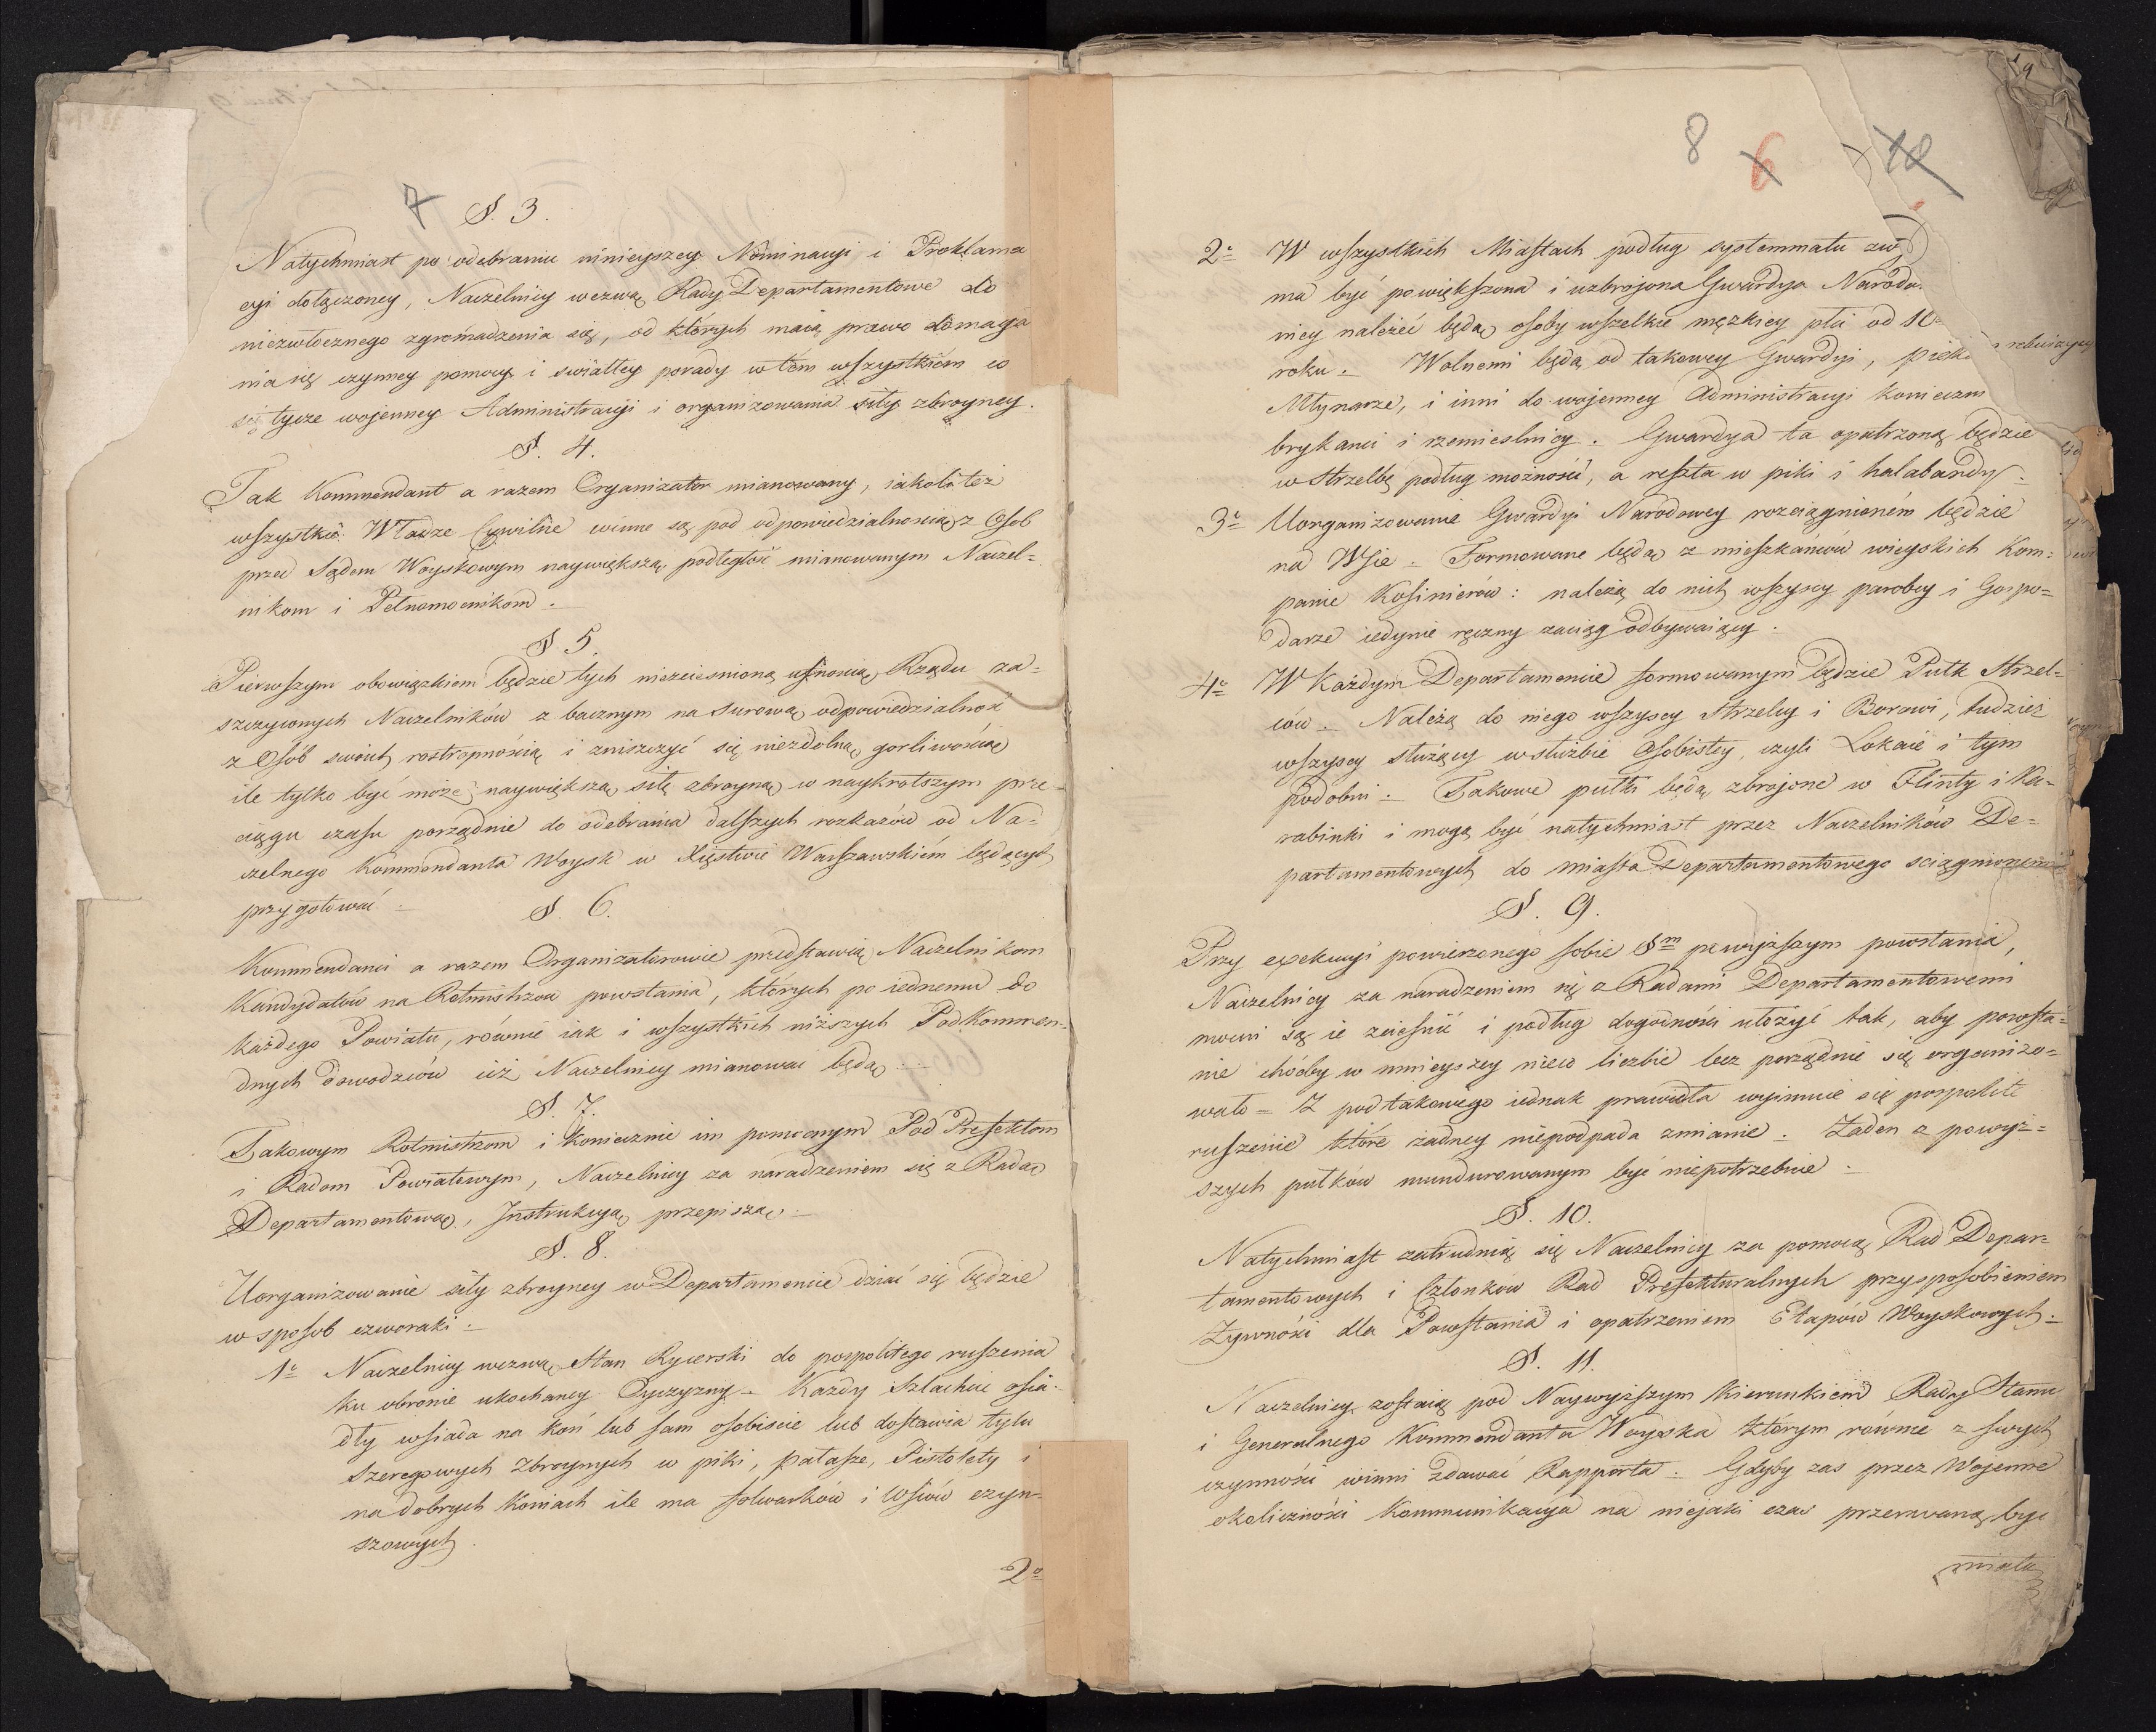 7
§. 3.
Natychmiast po odebraniu ninieyszey Nominacyi i Proklama
cyi dołączoney, Naczelnicy wezwą Rady Departamentowe do
niezwłocznego zgromadzenia się, od których maią prawo domaga
nia się czynney pomocy i swiatłey porady w tém wszystkiém co
się tycze wojenney Administracyi i organizowania siły zbroyney.
§. 4.
Tak Kommendant a razem Organizator mianowany, iakoli też
wszystkie Władze Cywilne winne są pod odpowiedzialnoscią z Osob
przed Sądem Woyskowym naywiększą podległość mianowanym Naczel=
nikom i Pełnomocnikom.
§ 5.
Pierwszym obowiązkiem będzie tych nieścieśnioną ufnoscią Rządu za=
szczyconych Naczelników z bacznym na surową odpowiedzialność
z Osób swoich rostropnością i zniszczyć się niezdolną gorliwością
ile tylko być może naywiększą siłę zbroyną w naykrotszym prze=
ciągu czasu porządnie do odebrania dalszych rozkazów od Na=
czelnego Kommendanta Woysk w Xięstwie Warszawskiém będących
przygotować.
§. 6.
Kommendanci a razem Organizatorowie przedstawią Naczelnikom
Kandydatów na Rotmistrzow powstania, których po iednemu do
każdego Powiatu, równie iak i wszystkich niższych PodKommen=
dnych dowodzców iéż Naczelnicy mianować będą.
§. 7.
Takowym Rotmistrzom i koniecznie im pomocnym Pod Prefektom
i Radom Powiatowym, Naczelnicy za naradzeniem się z Radą
Departamentową, Instrukcyą przepiszą.
§. 8.
Uorganizowanie siły zbroyney w Departamencie dziać się będzie
w sposob czworaki.
1º Naczelnicy wezwą Stan Rycerski do pospolitego ruszenia
ku obronie ukochaney Oyczyzny. Każdy Szlachcic osia=
dły wsiada na koń lub sam osobiscie lub dostawia tylu
Szeregowych zbroynych w piki, pałasze, Pistolety i
na dobrych koniach ile ma folwarków i Wsiów czyn=
szowych.
2º
9
8 6 10
2º W wszystkich Miastach podług systemmatu
ma być powiększona i uzbrojona Gwardya Narodo.
niey należeć będą osoby wszelkie męzkiey płci od
roku. Wolnemi będą od takowey Gwardyi,
Młynarze, i inni do wojenney Administracyi konieczn
brykanci i rzemieslnicy. Gwardya ta opatrzoną będzie
w strzelbę podług możności, a reszta w piki i halabardy.
3º Uorganizowanie Gwardyi Narodowey rozciągnioném będzie
na Wsie. Formowane będą z mieszkańców wieyskich Kom=
panie Kosinierów: należą do nich wszyscy parobcy i Gospo=
darze iedynie ręczny zaciąg odbywaiący.
4º W Każdym Departamencie formowanym będzie Pułk Strzel=
ców. Należą do niego wszyscy Strzelcy i Borowi, tudzież
wszyscy służący w służbie Osobistey, czyli Lokaie i tym
podobni. Takowe pułki będą zbrojone w Flinty i Ka=
rabinki i mogą być natychmiast przez Naczelników De=
partamentowych do miasta Departamentowego sciągnionemi
§. 9.
Przy exekucyi powierzonego sobie §m powyższym powstania,
Naczelnicy za naradzeniem się z Radami Departamentowemi
mocni są ie zcieśnić i podług dogodności ułożyć tak, aby powsta=
nie choćby w mnieyszey nieco liczbie lecz porządnie się organizo=
wało = Z pod takowego iednak prawidła wyimuie się pospolite
ruszenie które żadney niepodpada zmianie. Żaden z powyż=
szych pułków mundurowanym być niepotrzebuie.
§. 10.
Natychmiast zatrudnią się Naczelnicy za pomocą Rad Depar=
tamentowych i Członków Rad Prefekturalnych przysposobieniem
Żywności dla Powstania i opatrzeniem Etapów Woyskowych.
§. 11.
Naczelnicy zostaią pod Naywyższym kierunkiem Rady Stanu
i Generalnego Kommendanta Woyska którym równie z swych
czynności winni zdawać Rapporta. Gdyby zas przez Wojenne
okoliczności Kommunikacya na niejaki czas przerwaną być
miała